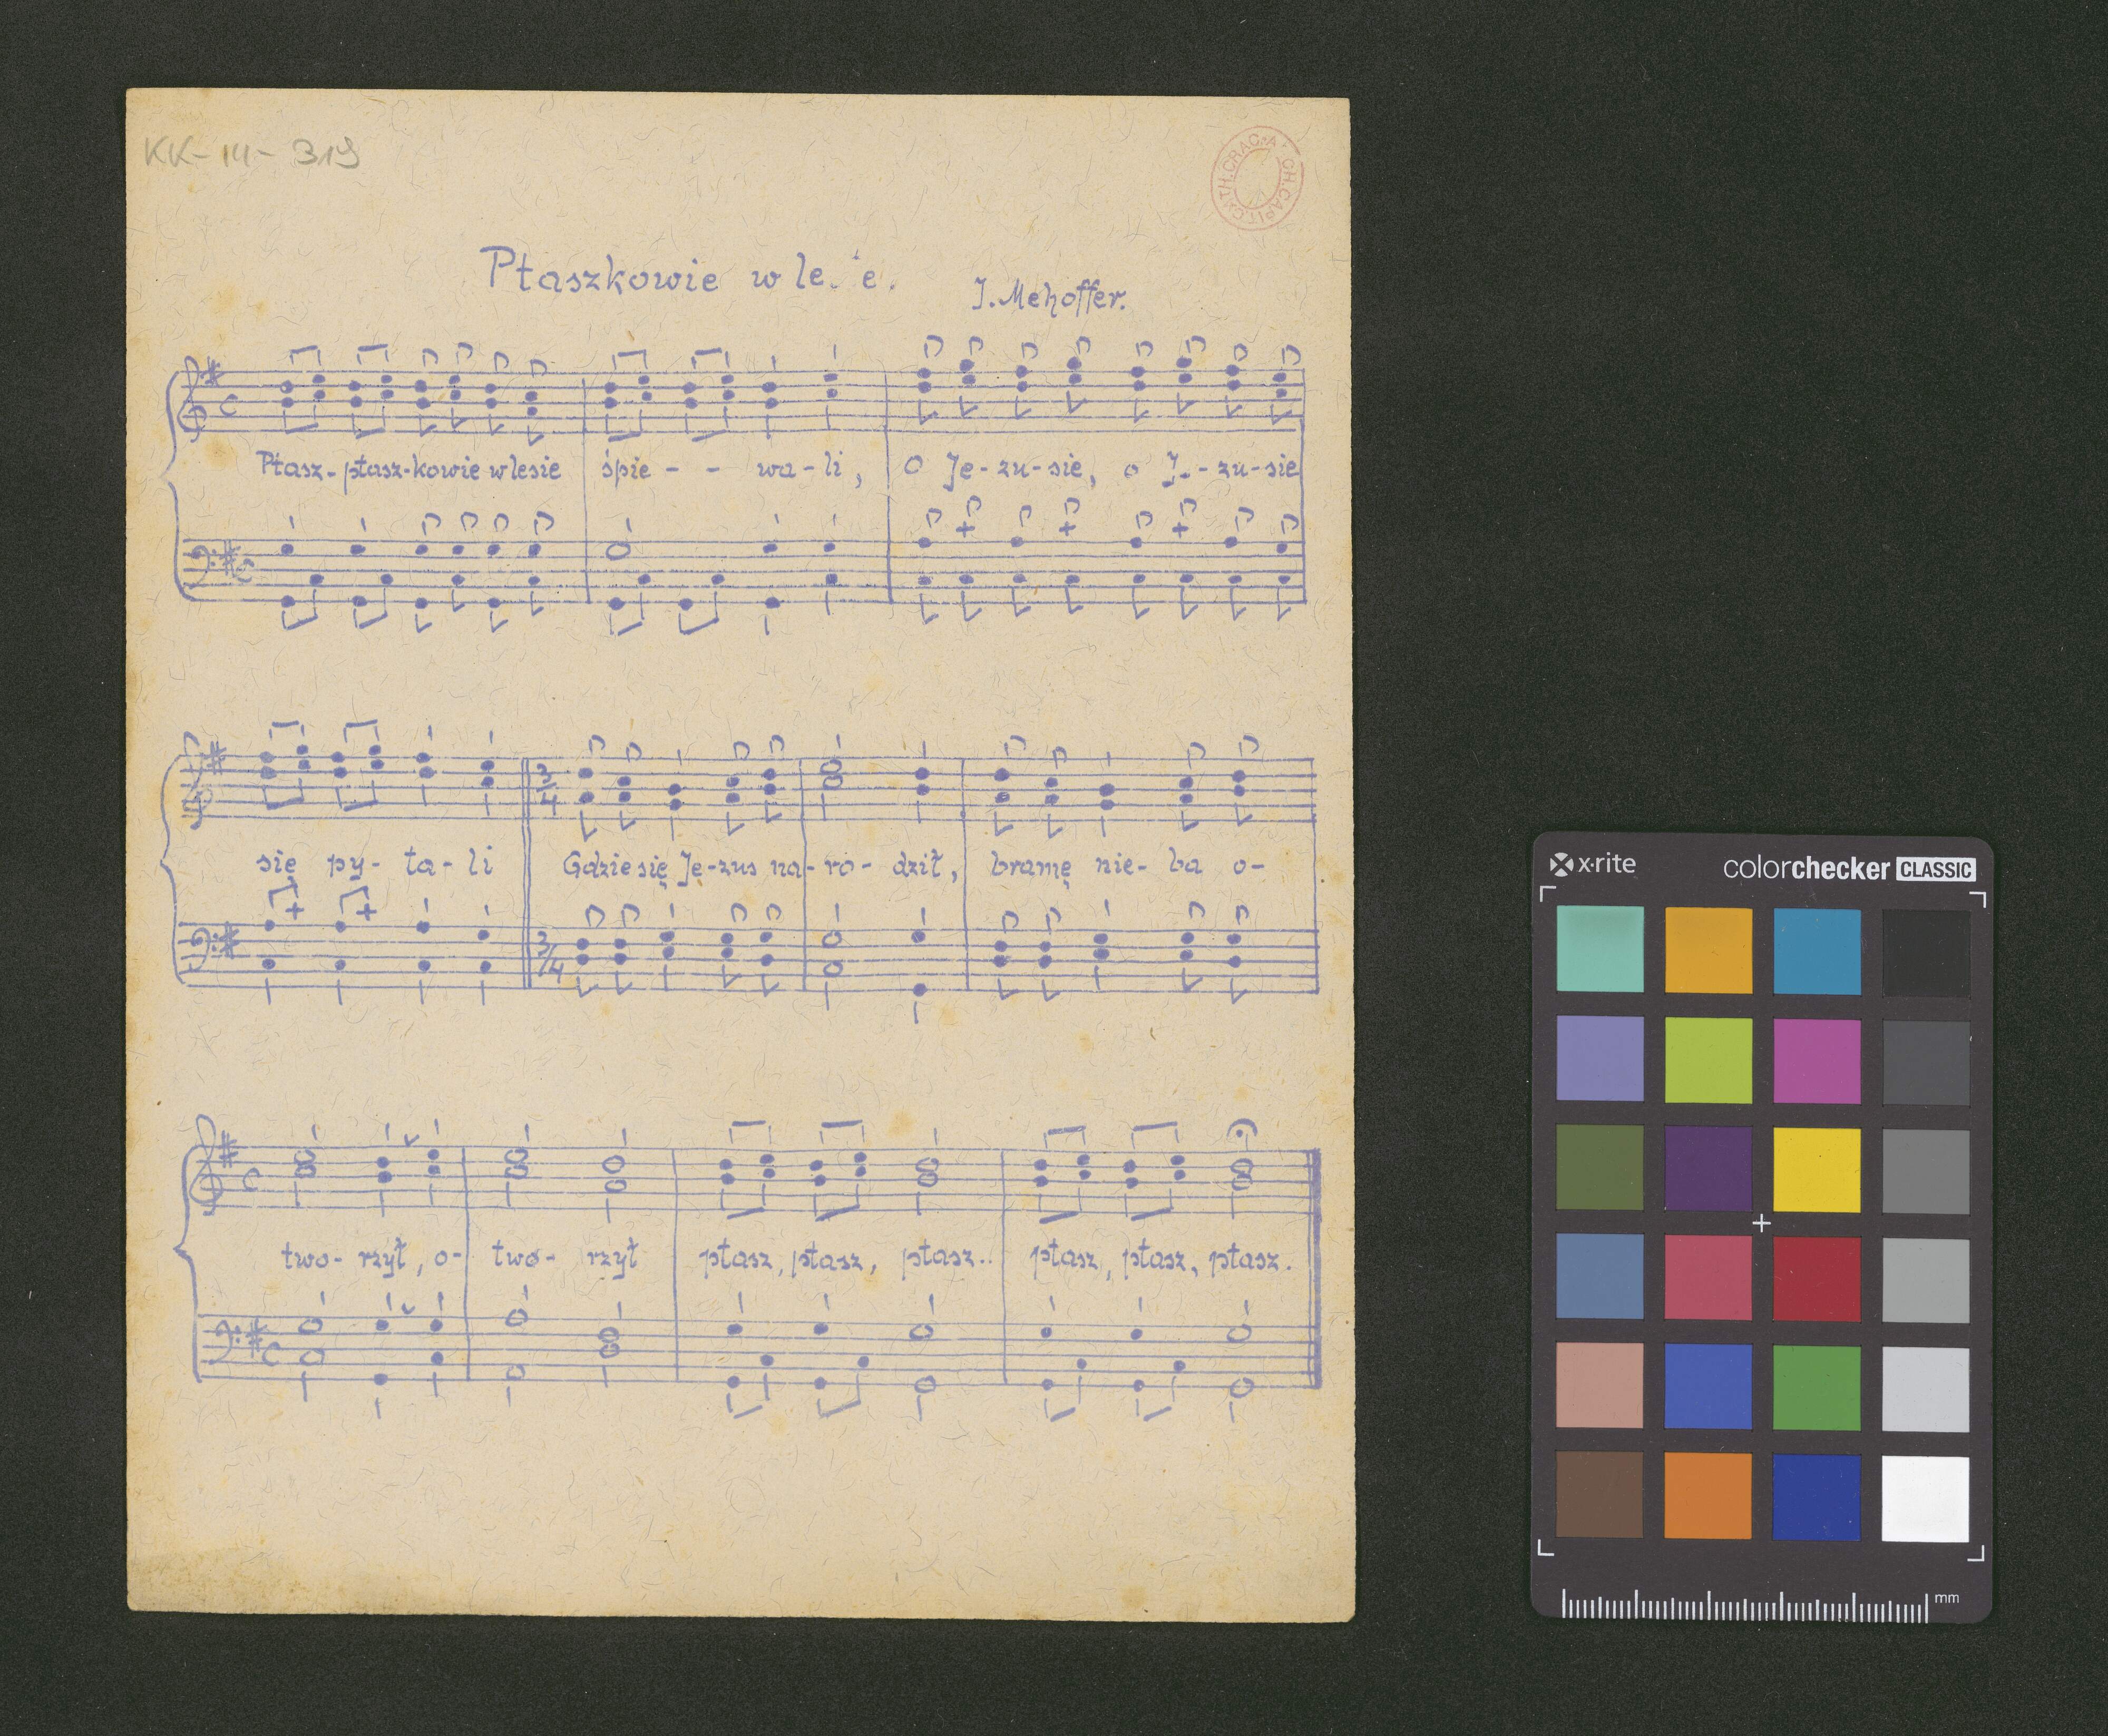 KK-III-319
ARCH. CAPIT. CATH. CRAC.
Ptaszkowie w le. e.
J. Mehoffer.
Ptasz-ptasz-kowie w lesie śpie - - wa-li, O Je-zu-sie, o J.-zu-sie
się py-ta-li Gdzie się Je-zus na-ro-dził, bramę nie-ba o-
3/4
3/4
two-rzył, o-two-rzył ptasz, ptasz, ptasz.. ptasz, ptasz, ptasz.
x-rite colorchecker CLASSIC
mm